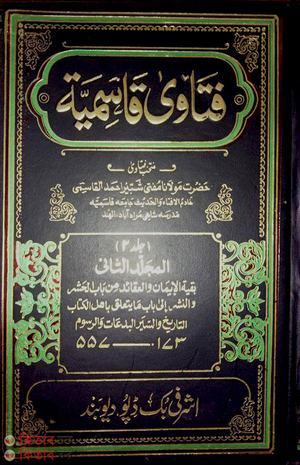 فتاویٰ قاسمیۃ
منتخب فتاویٰ
حضرت مولانا مفتی شبیر احمد القاسمی
خادم الافتاء والحدیث جامعہ قاسمیہ
مدرسہ شاہی مراد آباد، الہند
(جلد ۲)
المجلد الثانی
بقية الإيمان والعقائد من باب الحشر
والنشر إلى باب ما يتعلق بأهل الكتاب
التاريخ والسير البدعات والرسوم
۱۷۳ ــــ ۵۵۷
اشرفی بک ڈپو دیوبند
কিতাব
কিতাব